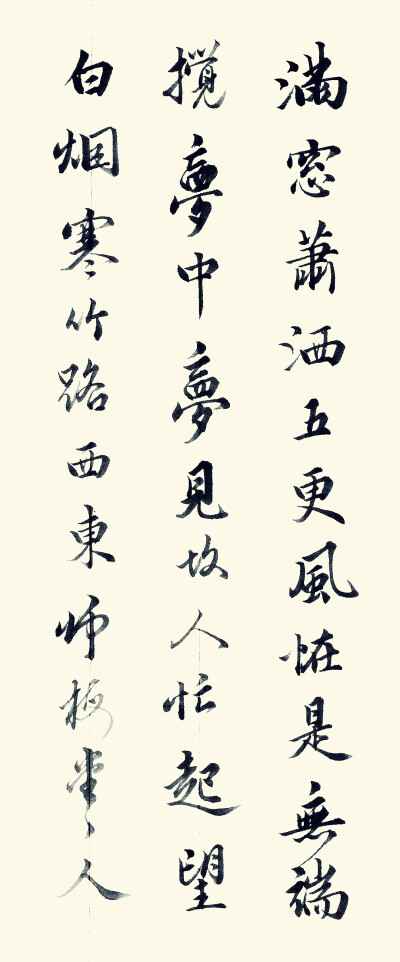 滿窓蕭洒五更風恠是無端
攪夢中夢見故人忙起望
白烟寒竹路西東师梅堂人